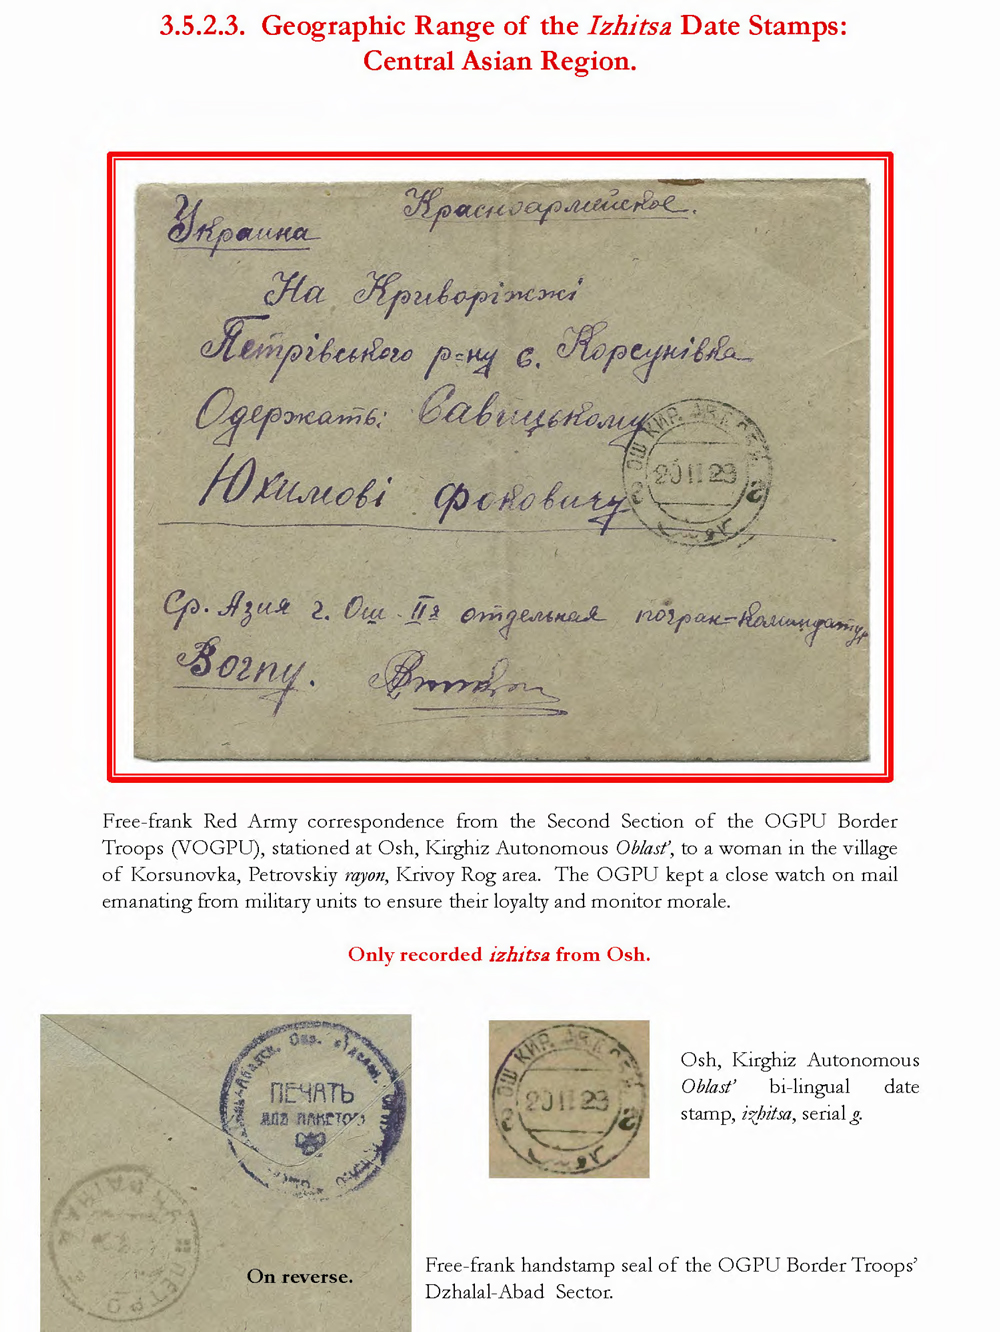 3.5.2.3. Geographic Range of the Izhitsa Date Stamps:
Central Asian Region.
Красноармейское.
Украина
На Криворіжжі
Петрівського р-ну с. Корсунівка
Одержать: Савицькому
Юхимові Фоковичу
ОШ КИР. АВТ.
20 11 23
Ср. Азия г. Ош IIя отдельная погран-комендатур
Вогпу.
Free-frank Red Army correspondence from the Second Section of the OGPU Border
Troops (VOGPU), stationed at Osh, Kirghiz Autonomous Oblast', to a woman in the village
of Korsunovka, Petrovskiy rayon, Krivoy Rog area. The OGPU kept a close watch on mail
emanating from military units to ensure their loyalty and monitor morale.
Only recorded izhitsa from Osh.
ПЕЧАТЬ
ДЛЯ ПАКЕТОВ
On reverse.
ОШ КИР. АВТ.
20 11 23
Osh, Kirghiz Autonomous
Oblast' bi-lingual date
stamp, izhitsa, serial g.
Free-frank handstamp seal of the OGPU Border Troops'
Dzhalal-Abad Sector.